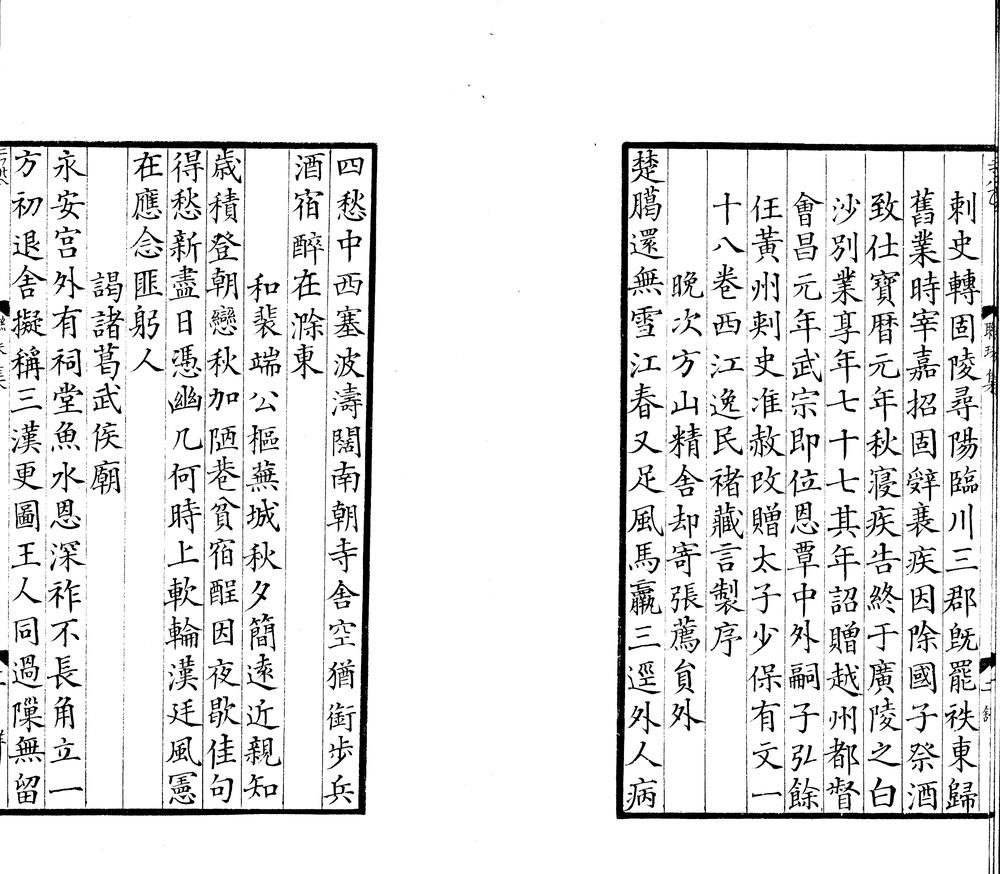 刺史轉固陵尋陽臨川三郡旣罷祑東歸
舊業時宰嘉招固辤裹疾因除國子祭酒
致仕寶曆元年秋寖疾告終于廣陵之白
沙別業享年七十七其年詔贈越州都督
會昌元年武宗即位恩覃中外嗣子弘餘
任黃州刺史准赦改贈太子少保有文一
十八卷西江逸民褚藏言製序
晚次方山精舍却寄張薦貟外
楚臈還無雪江春又足風馬羸三逕外人病
四愁中西塞波濤闊南朝寺舍空猶銜步兵
酒宿醉在滁東
和裴端公樞蕪城秋夕簡遠近親知
歲積登朝戀秋加陋巷貧宿酲因夜歇佳句
得愁新盡日憑幽几何時上軟輪漢廷風憲
在應念匪躬人
謁諸葛武侯廟
永安宫外有祠堂魚水恩深祚不長角立一
方初退舍擬稱三漢更圖王人同過隟無留